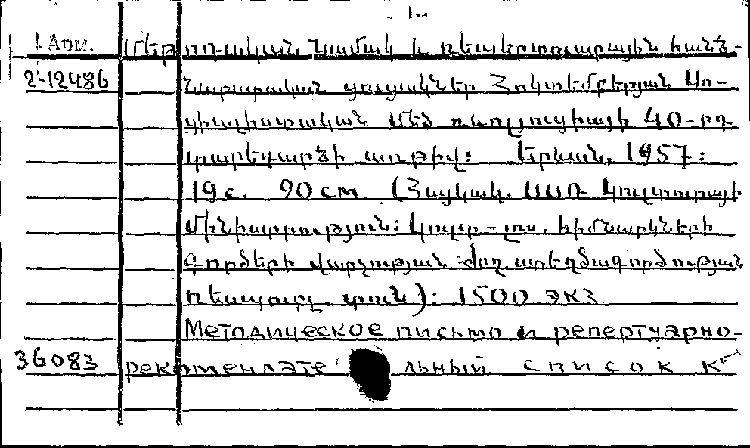 1 Арм. Մեթոդական նամակ և ռեպերտուարային հանձ-
2-12486 նարարական ցուցակներ Հոկտեմբերյան Սո-
ցիալիստական Մեծ ռևոլյուցիայի 40-րդ
տարեդարձի առթիվ: Երևան, 1957:
19 с. 20 см (Հայկակ. ՍՍՌ Կուլտուրայի
մինիստրություն: Կուլտ-լուս. հիմնարկների
գործերի վարչության ժող. ստեղծագործության
ռեսպուբլ. տուն): 1500 экз
Методическое письмо и репертуарно-
36083 рекомендательный список к